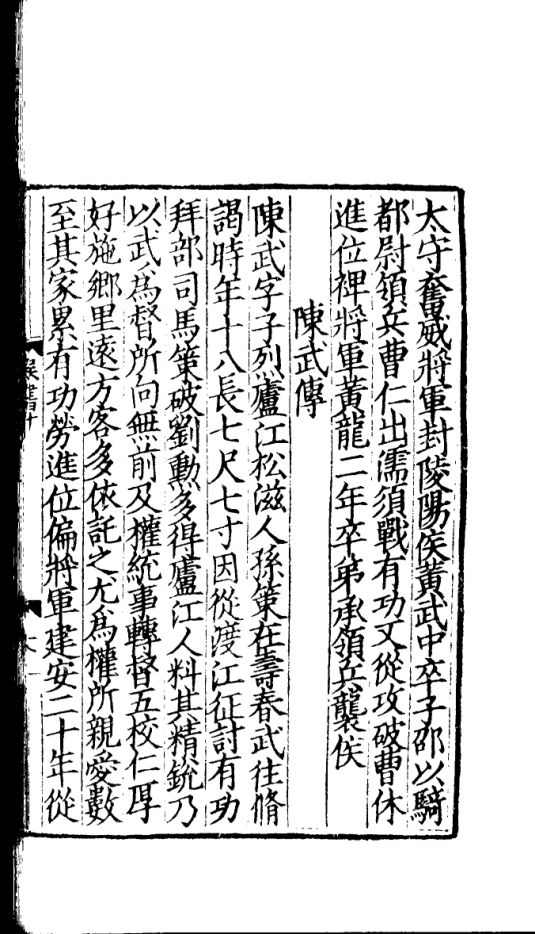 太守奮威將軍封陵陽侯黃武中卒子邵以騎
都尉領兵曹仁出濡須戰有功又從攻破曹休
進位裨將軍黃龍二年卒弟承領兵襲侯
陳武傳
陳武字子烈廬江松滋人孫策在壽春武往脩
謁時年十八長七尺七寸因從渡江征討有功
拜部司馬策破劉勳多得廬江人料其精銳乃
以武爲督所向無前及權統事轉督五校仁厚
好施鄉里遠方客多依託之尤爲權所親愛數
至其家累有功勞進位偏將軍建安二十年從